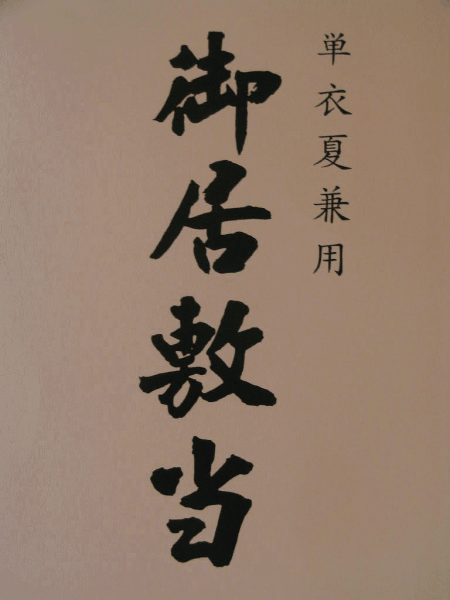 単衣夏兼用
御居敷当